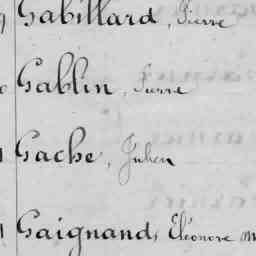 Gabillard, Pierre
Gablin, Pierre
Gache, Julien
Gaignand, Eléonore